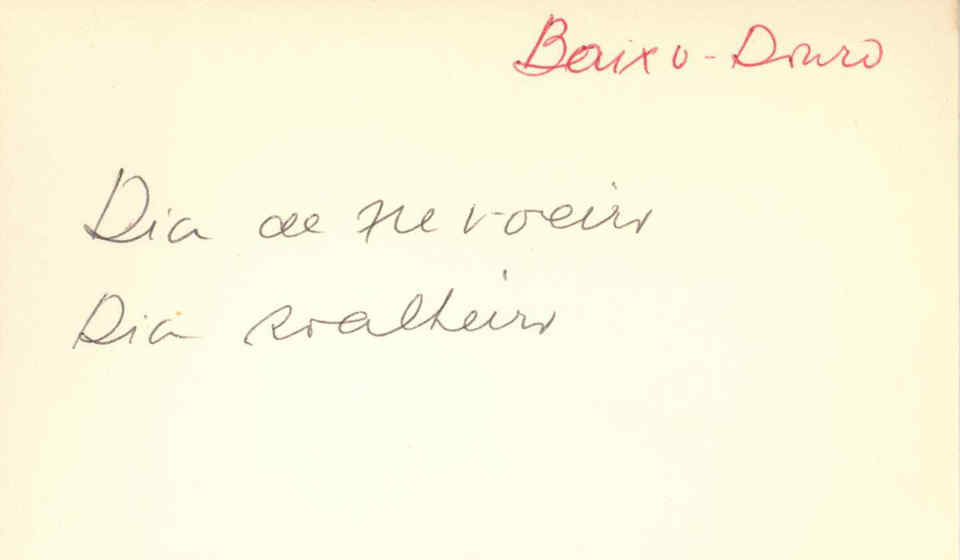 Baixo-Douro
Dia de nevoeiro
Dia soalheiro